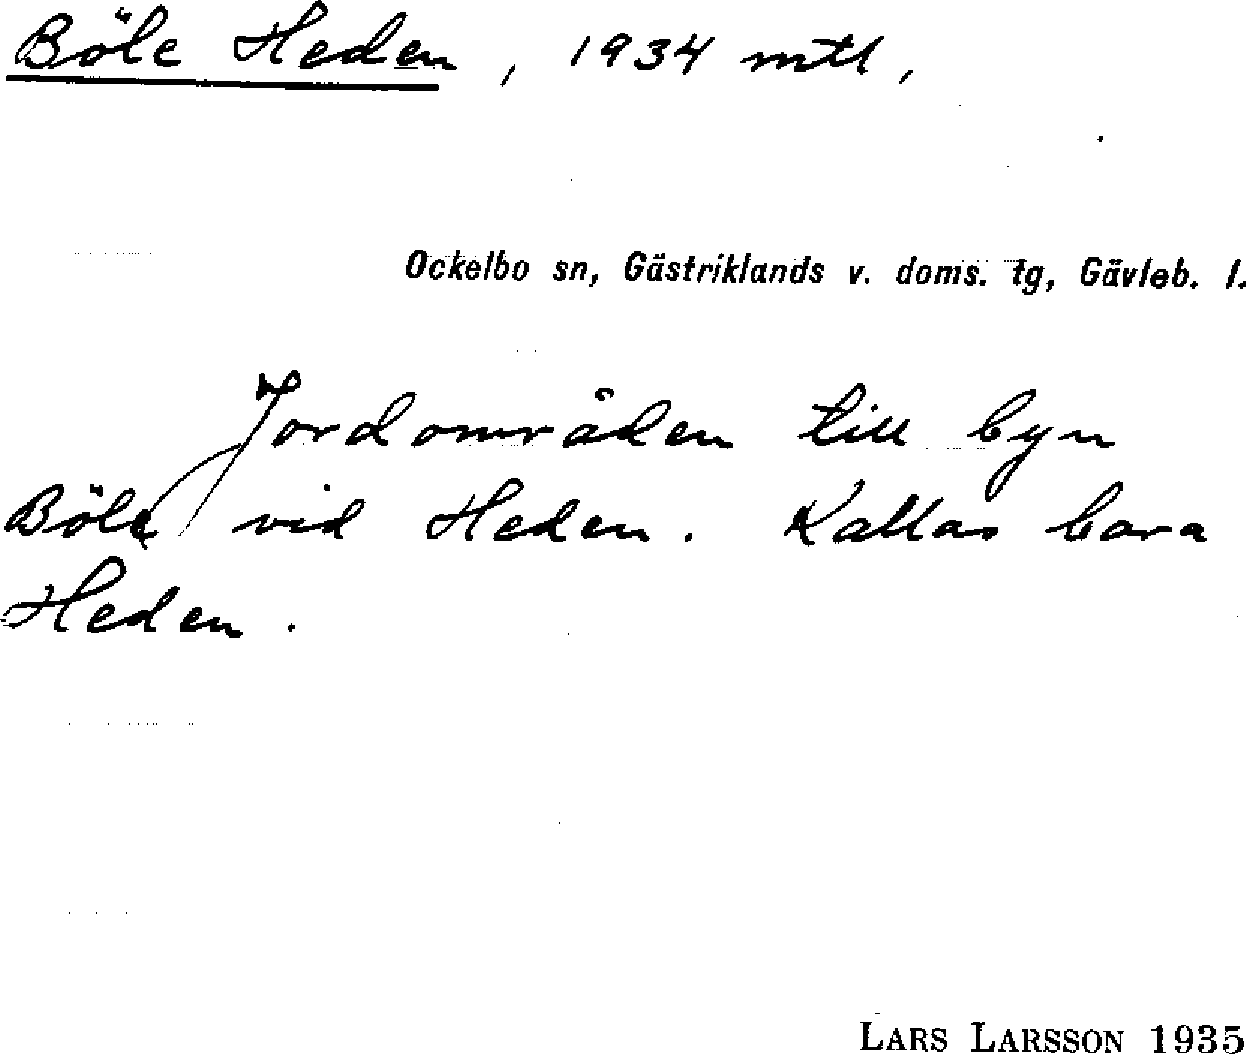 Böle Heden, 1934 mtl,
Ockelbo sn, Gästriklands v. doms. tg, Gävleb. l.
Jordområden till byn
Böle vid Heden. Kallas bara
Heden.
LARS LARSSON 1935